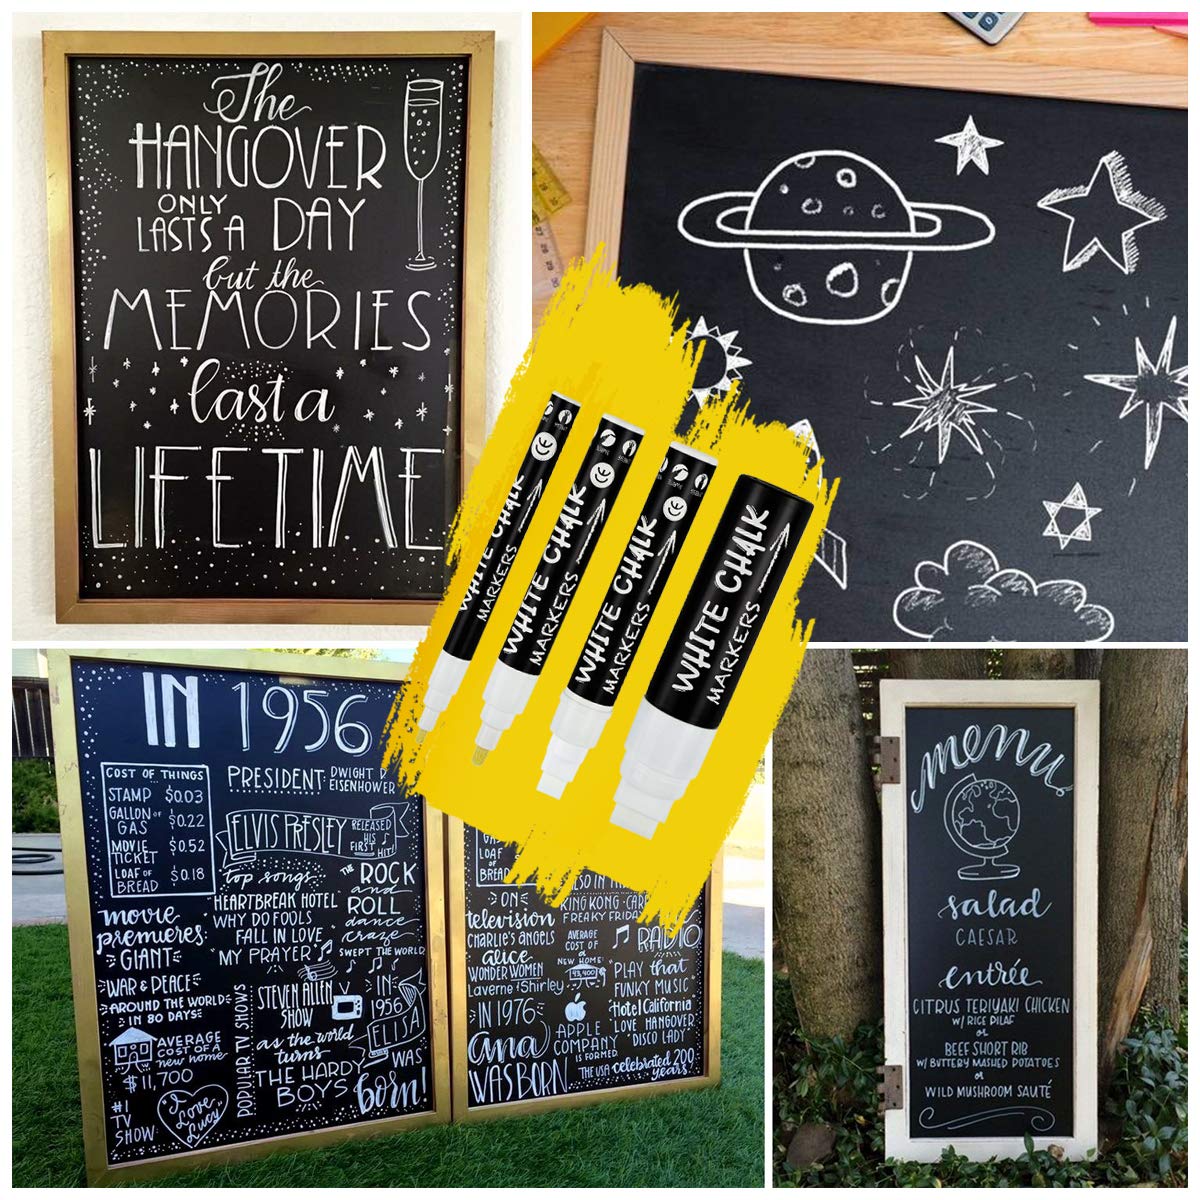 The
HANGOVER
ONLY
LASTS A DAY
but the
MEMORIES
last a
LIFETIME
WHITE CHALK
MARKERS
WHITE CHALK
MARKERS
WHITE CHALK
MARKERS
WHITE CHALK
MARKERS
IN 1956
COST OF THINGS
STAMP $0.03
GALLON OF GAS $0.22
MOVIE TICKET $0.52
LOAF OF BREAD $0.18
PRESIDENT: DWIGHT D
EISENHOWER
ELVIS PRESLEY RELEASED
HIS
FIRST
HIT!
top songs
HEARTBREAK HOTEL
WHY DO FOOLS
FALL IN LOVE
"MY PRAYER"
THE ROCK
and
ROLL
dance
craze
SWEPT THE WORLD
movie
premieres:
GIANT
WAR & PEACE
AROUND THE WORLD
IN 80 DAYS
AVERAGE
COST OF A
new home
$11,700
#1
TV
SHOW
I
Love
Lucy
POPULAR TV SHOWS
STEVEN ALLEN
SHOW
as the world
turns
THE HARDY
BOYS
IN
1956
ELISA
WAS
born!
LOAF
OF
BREAD
ON
television
CHARLIE'S ANGELS
alice
WONDER WOMEN
Laverne & Shirley
IN 1976
ana
WAS BORN
ALSO IN
KING KONG CAR
FREAKY FRIDA
AVERAGE
COST OF
NEW HOME
43,400
RADIO
PLAY that
FUNKY MUSIC
Hotel California
LOVE HANGOVER
DISCO LADY
APPLE
COMPANY
IS FORMED
THE USA celebrated 200
years
menu
salad
CAESAR
entrée
CITRUS TERIYAKI CHICKEN
W/ RICE PILAF
or
BEEF SHORT RIB
W/ BUTTERY MASHED POTATOES
or
WILD MUSHROOM SAUTÉ